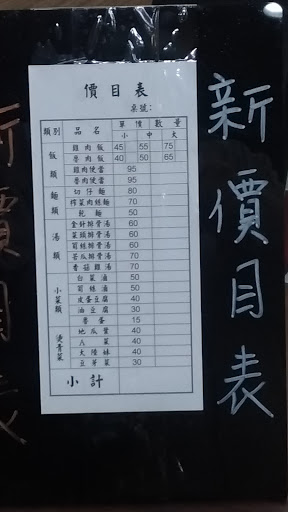 價目表
桌號：
類別 品名 單價數量
小 中 大
飯類
雞肉飯 45 55 75
魯肉飯 40 50 65
雞肉便當 95
魯肉便當 95
麵類
切仔麵 80
榨菜肉絲麵 70
乾麵 50
湯類
金針排骨湯 60
菜頭排骨湯 60
筍絲排骨湯 60
苦瓜排骨湯 70
香菇雞湯 70
小菜類
白菜滷 50
筍絲滷 50
皮蛋豆腐 40
油豆腐 30
魯蛋 15
燙青菜
地瓜葉 40
A菜 40
大陸妹 40
豆芽菜 30
小計
新價目表
新價目表